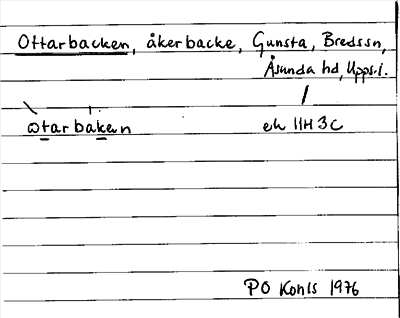 Ottarbacken, åkerbacke, Gunsta, Bredssn,
Åsunda hd, Upps.l.
ωtarbakan
ek 11H 3C
PO Konls 1976